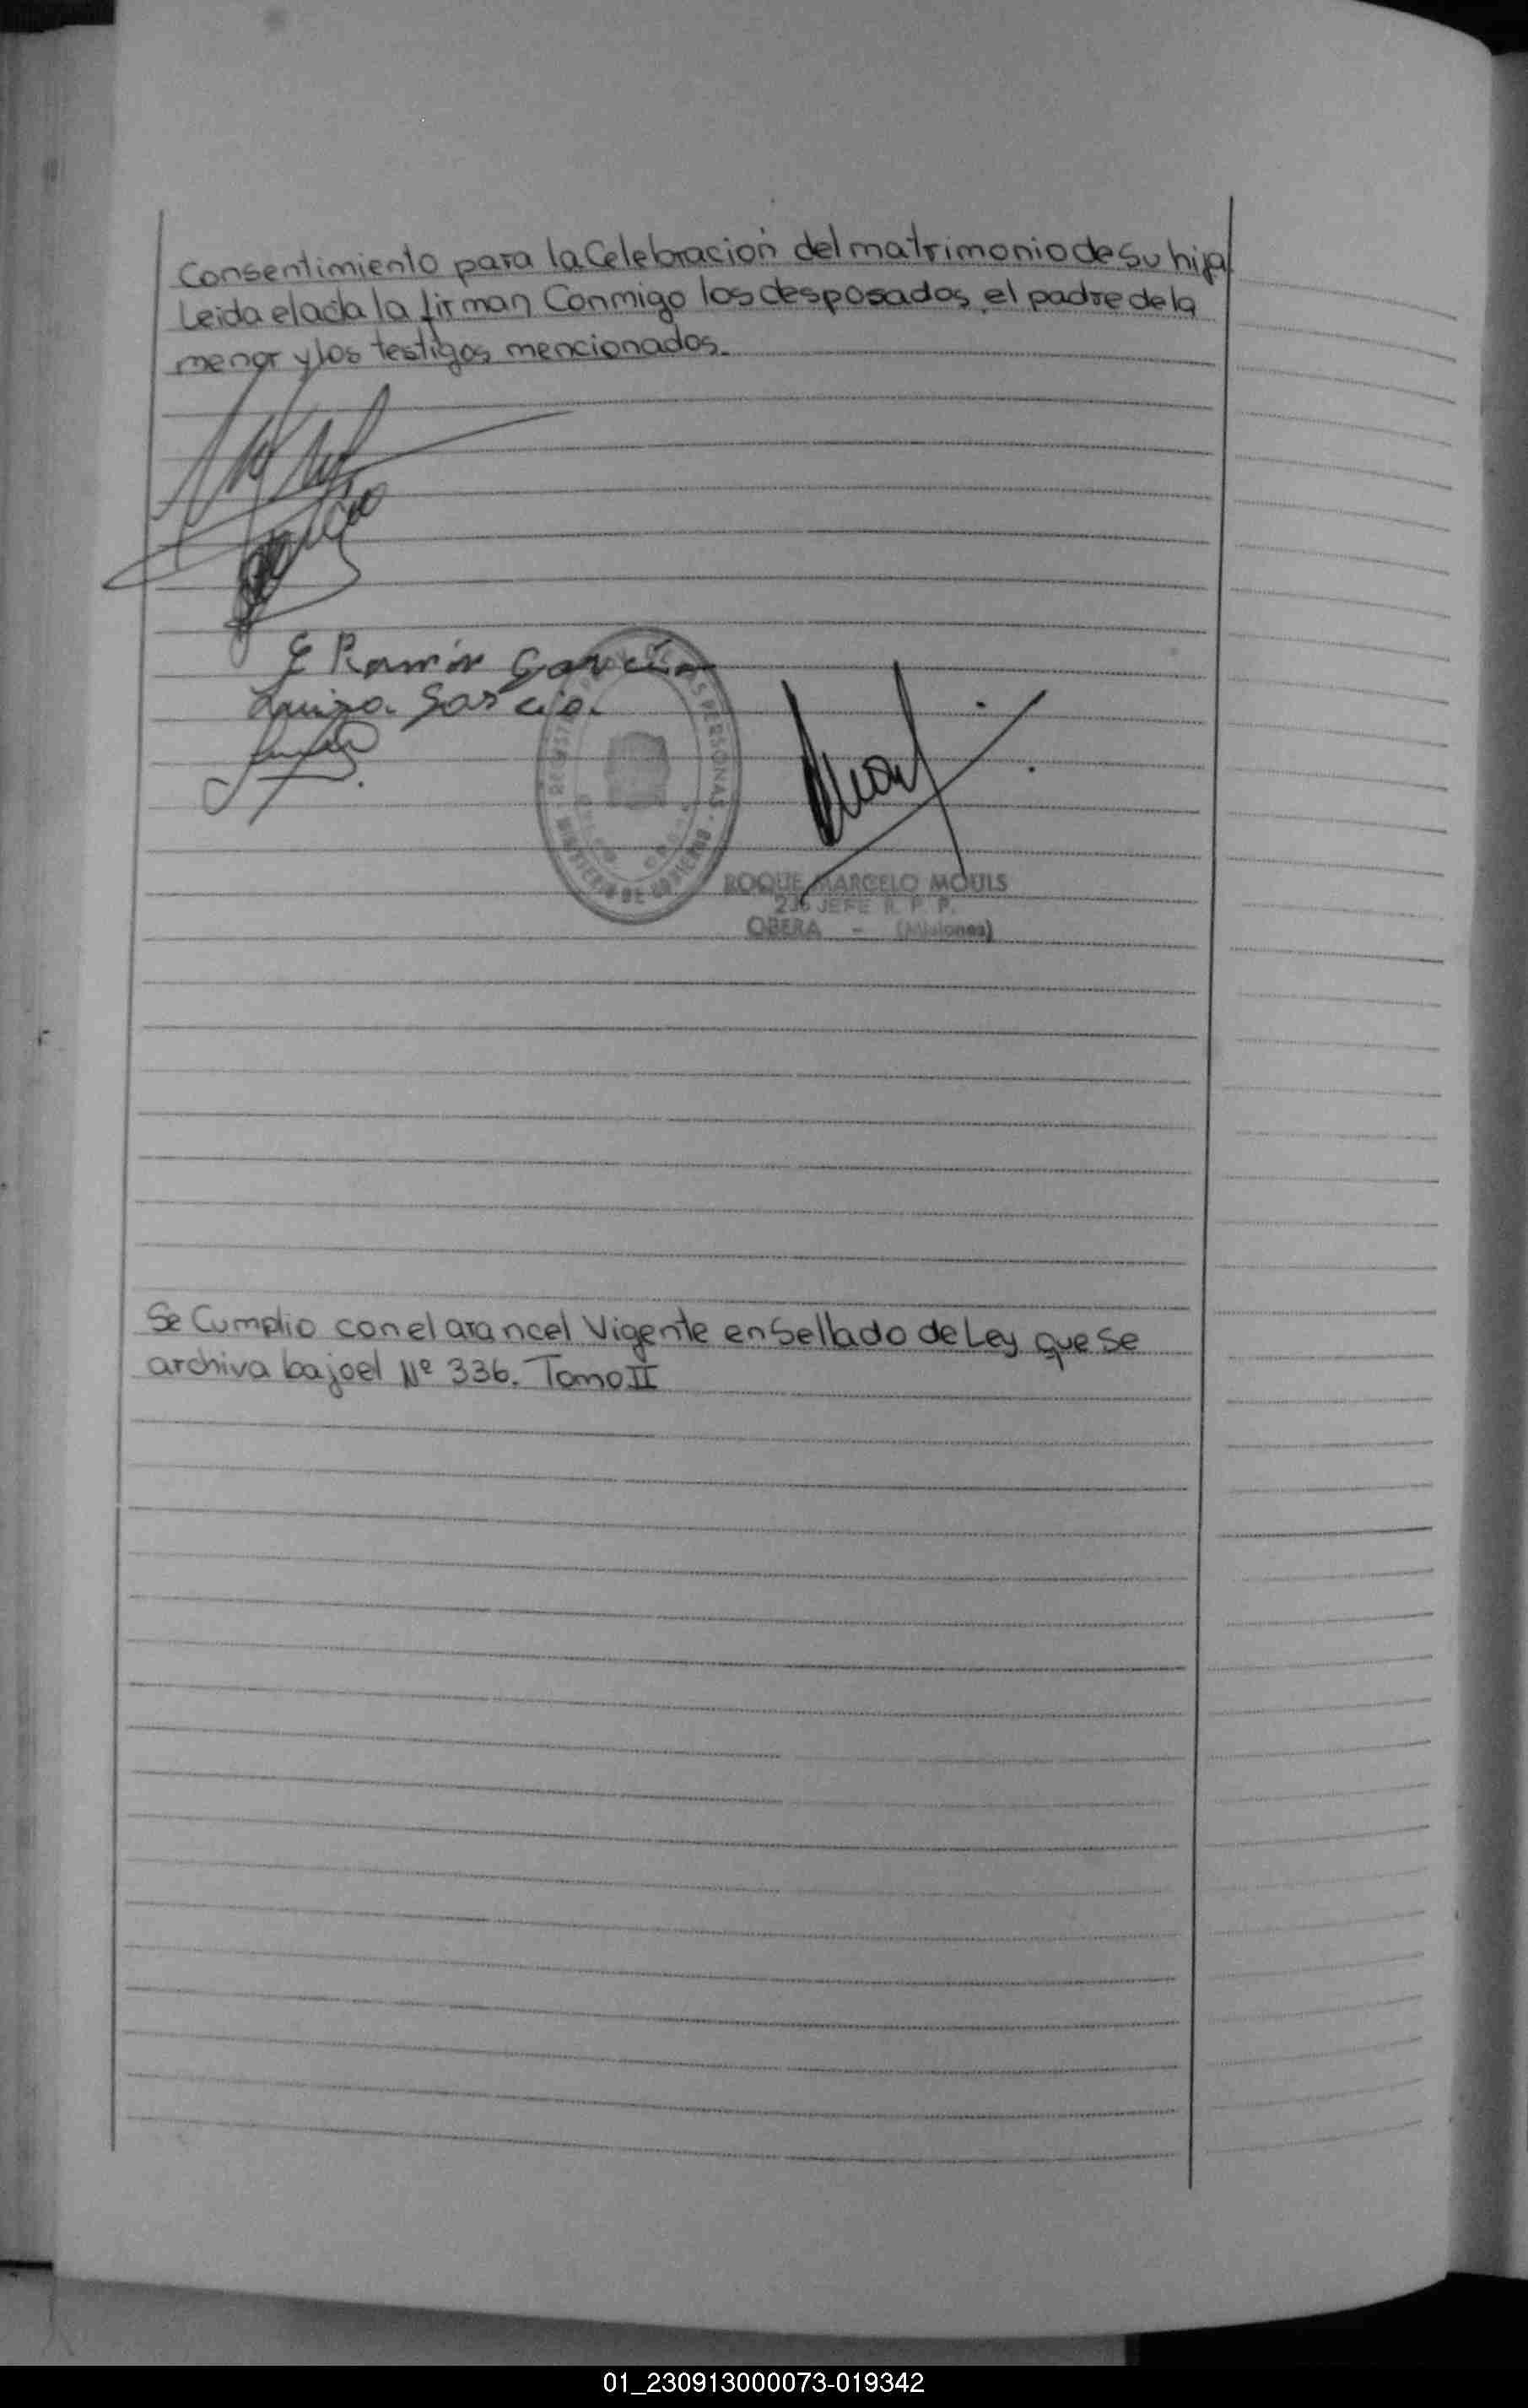 Consentimiento para la Celebración del matrimonio de su hija
Leida el acta la firman Conmigo los desposados, el padre de la
menor y los testigos mencionados.
E Ramón García
Luisa Garcia.
REGISTRO PROV. DE LAS PERSONAS
MINISTERIO DE GOBIERNO
ROQUE MARCELO MOULS
JEFE R. P. P.
OBERA - (Misiones)
Se Cumplio con el arancel Vigente en Sellado de Ley que Se
archiva bajo el Nº 336. Tomo II
01_230913000073-019342